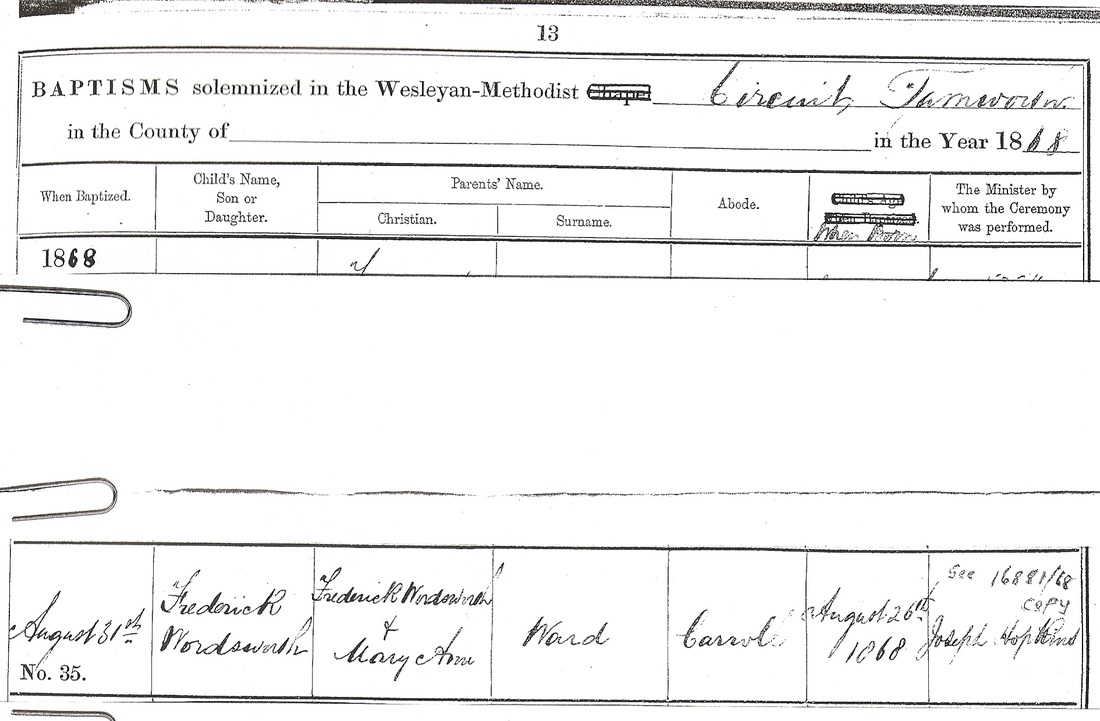 13
BAPTISMS solemnized in the Wesleyan-Methodist Chapel Circuit, Tamworth
in the County of in the Year 1868
When Baptized.
Child's Name,
Son or
Daughter.
Parents' Name.
Christian.
Surname.
Abode.
Child's Age
When Baptized.
When Born
The Minister by
whom the Ceremony
was performed.
1868
August 31st
No. 35.
Frederick
Wordsworth
Frederick Wordsworth
&
Mary Ann
Ward
Carroll
August 26th
1868
See 16881/68
COPY
Joseph Hopkins